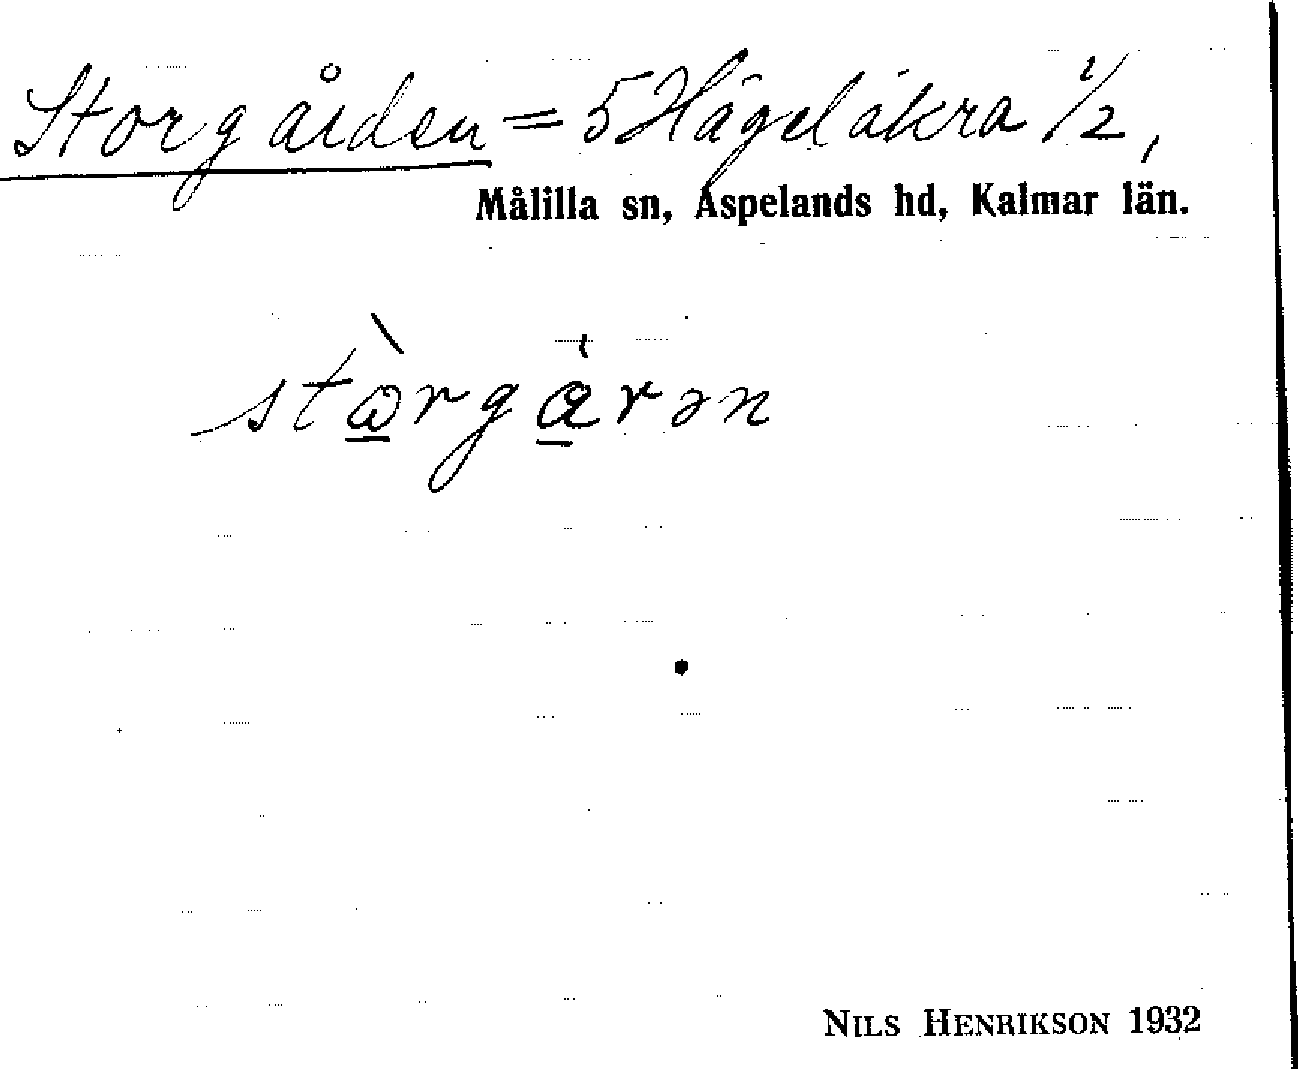 Storgården = 5 Hägelåkra 1/2,
Målilla sn, Aspelands hd, Kalmar län.
stɷ̀rgàrən
NILS HENRIKSON 1932